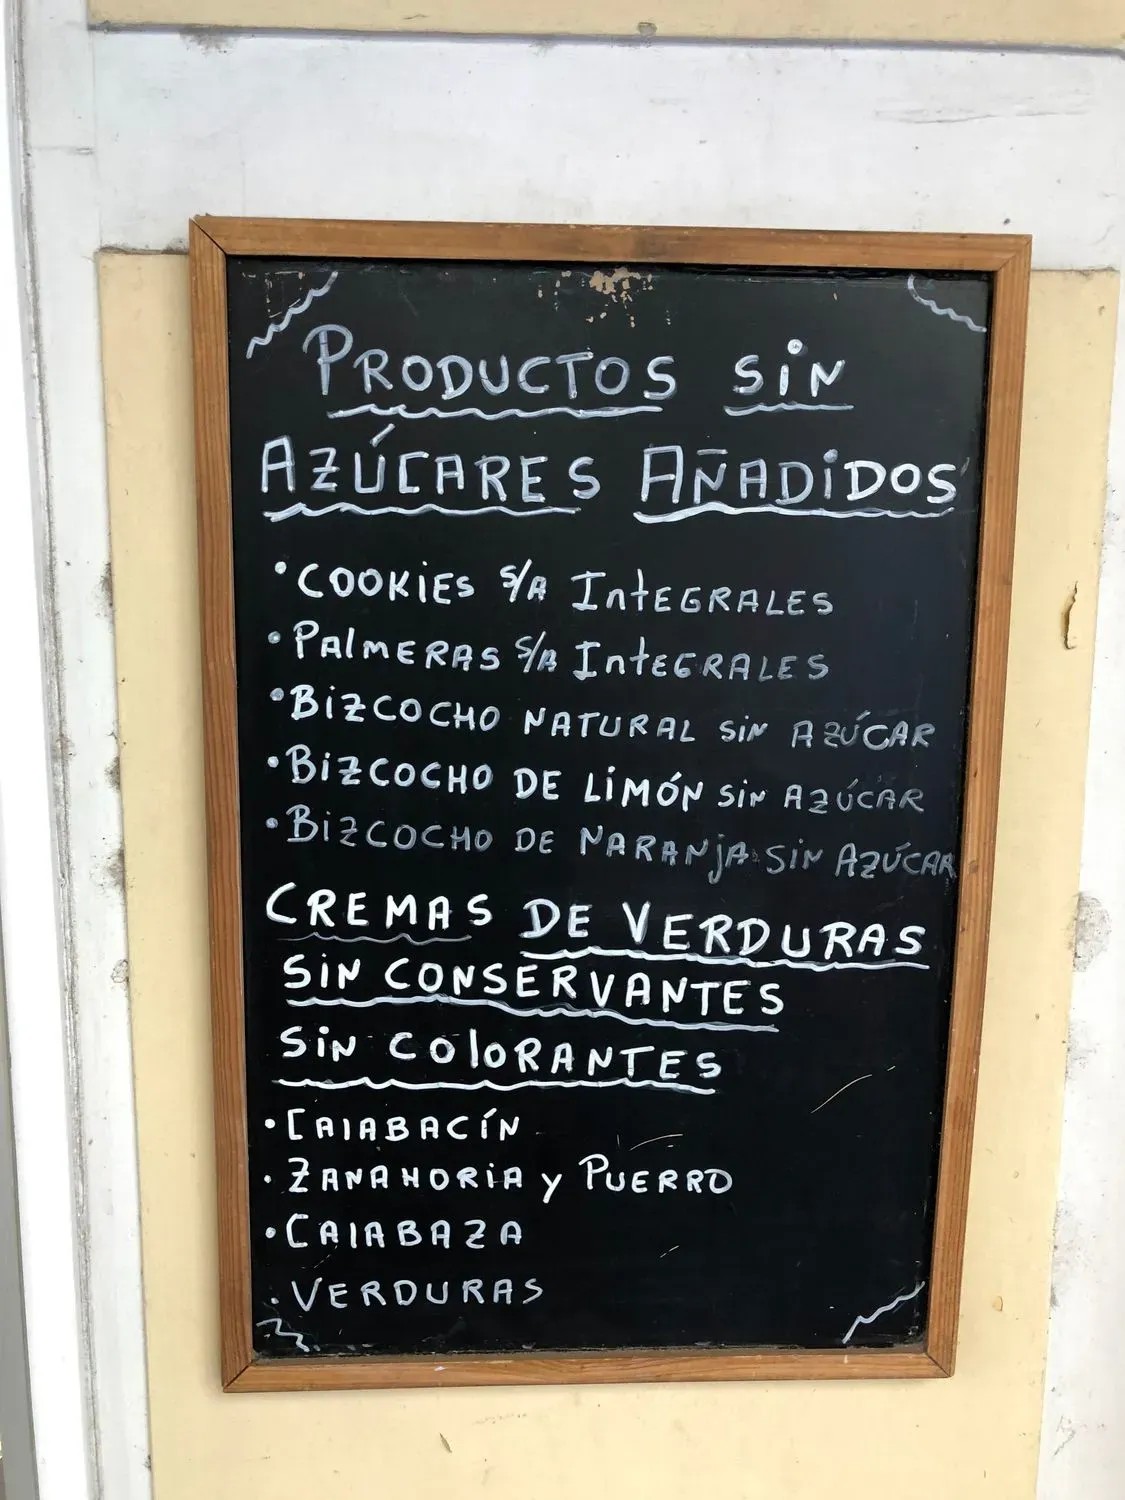 PRODUCTOS SIN
AZÚCARES AÑADIDOS
• COOKIES S/A INTEGRALES
• PALMERAS S/A INTEGRALES
• BIZCOCHO NATURAL SIN AZÚCAR
• BIZCOCHO DE LIMÓN SIN AZÚCAR
• BIZCOCHO DE NARANJA SIN AZÚCAR
CREMAS DE VERDURAS
SIN CONSERVANTES
SIN COLORANTES
• CALABACÍN
• ZANAHORIA Y PUERRO
• CALABAZA
• VERDURAS